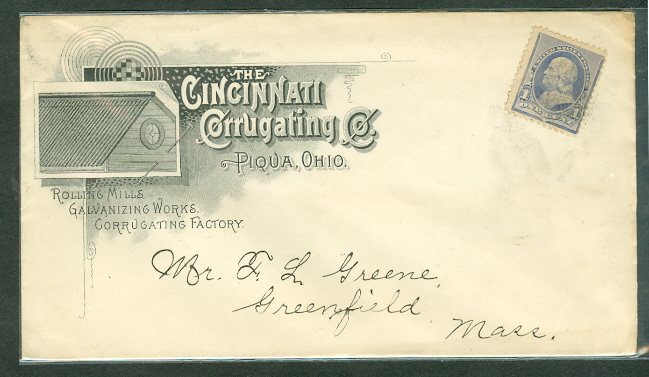 THE
CINCINNATI
CORRUGATING CO.
PIQUA, OHIO.
ROLLING MILLS.
GALVANIZING WORKS.
CORRUGATING FACTORY.
UNITED STATES
1 1
Mr. F. L. Greene,
Greenfield
Mass.